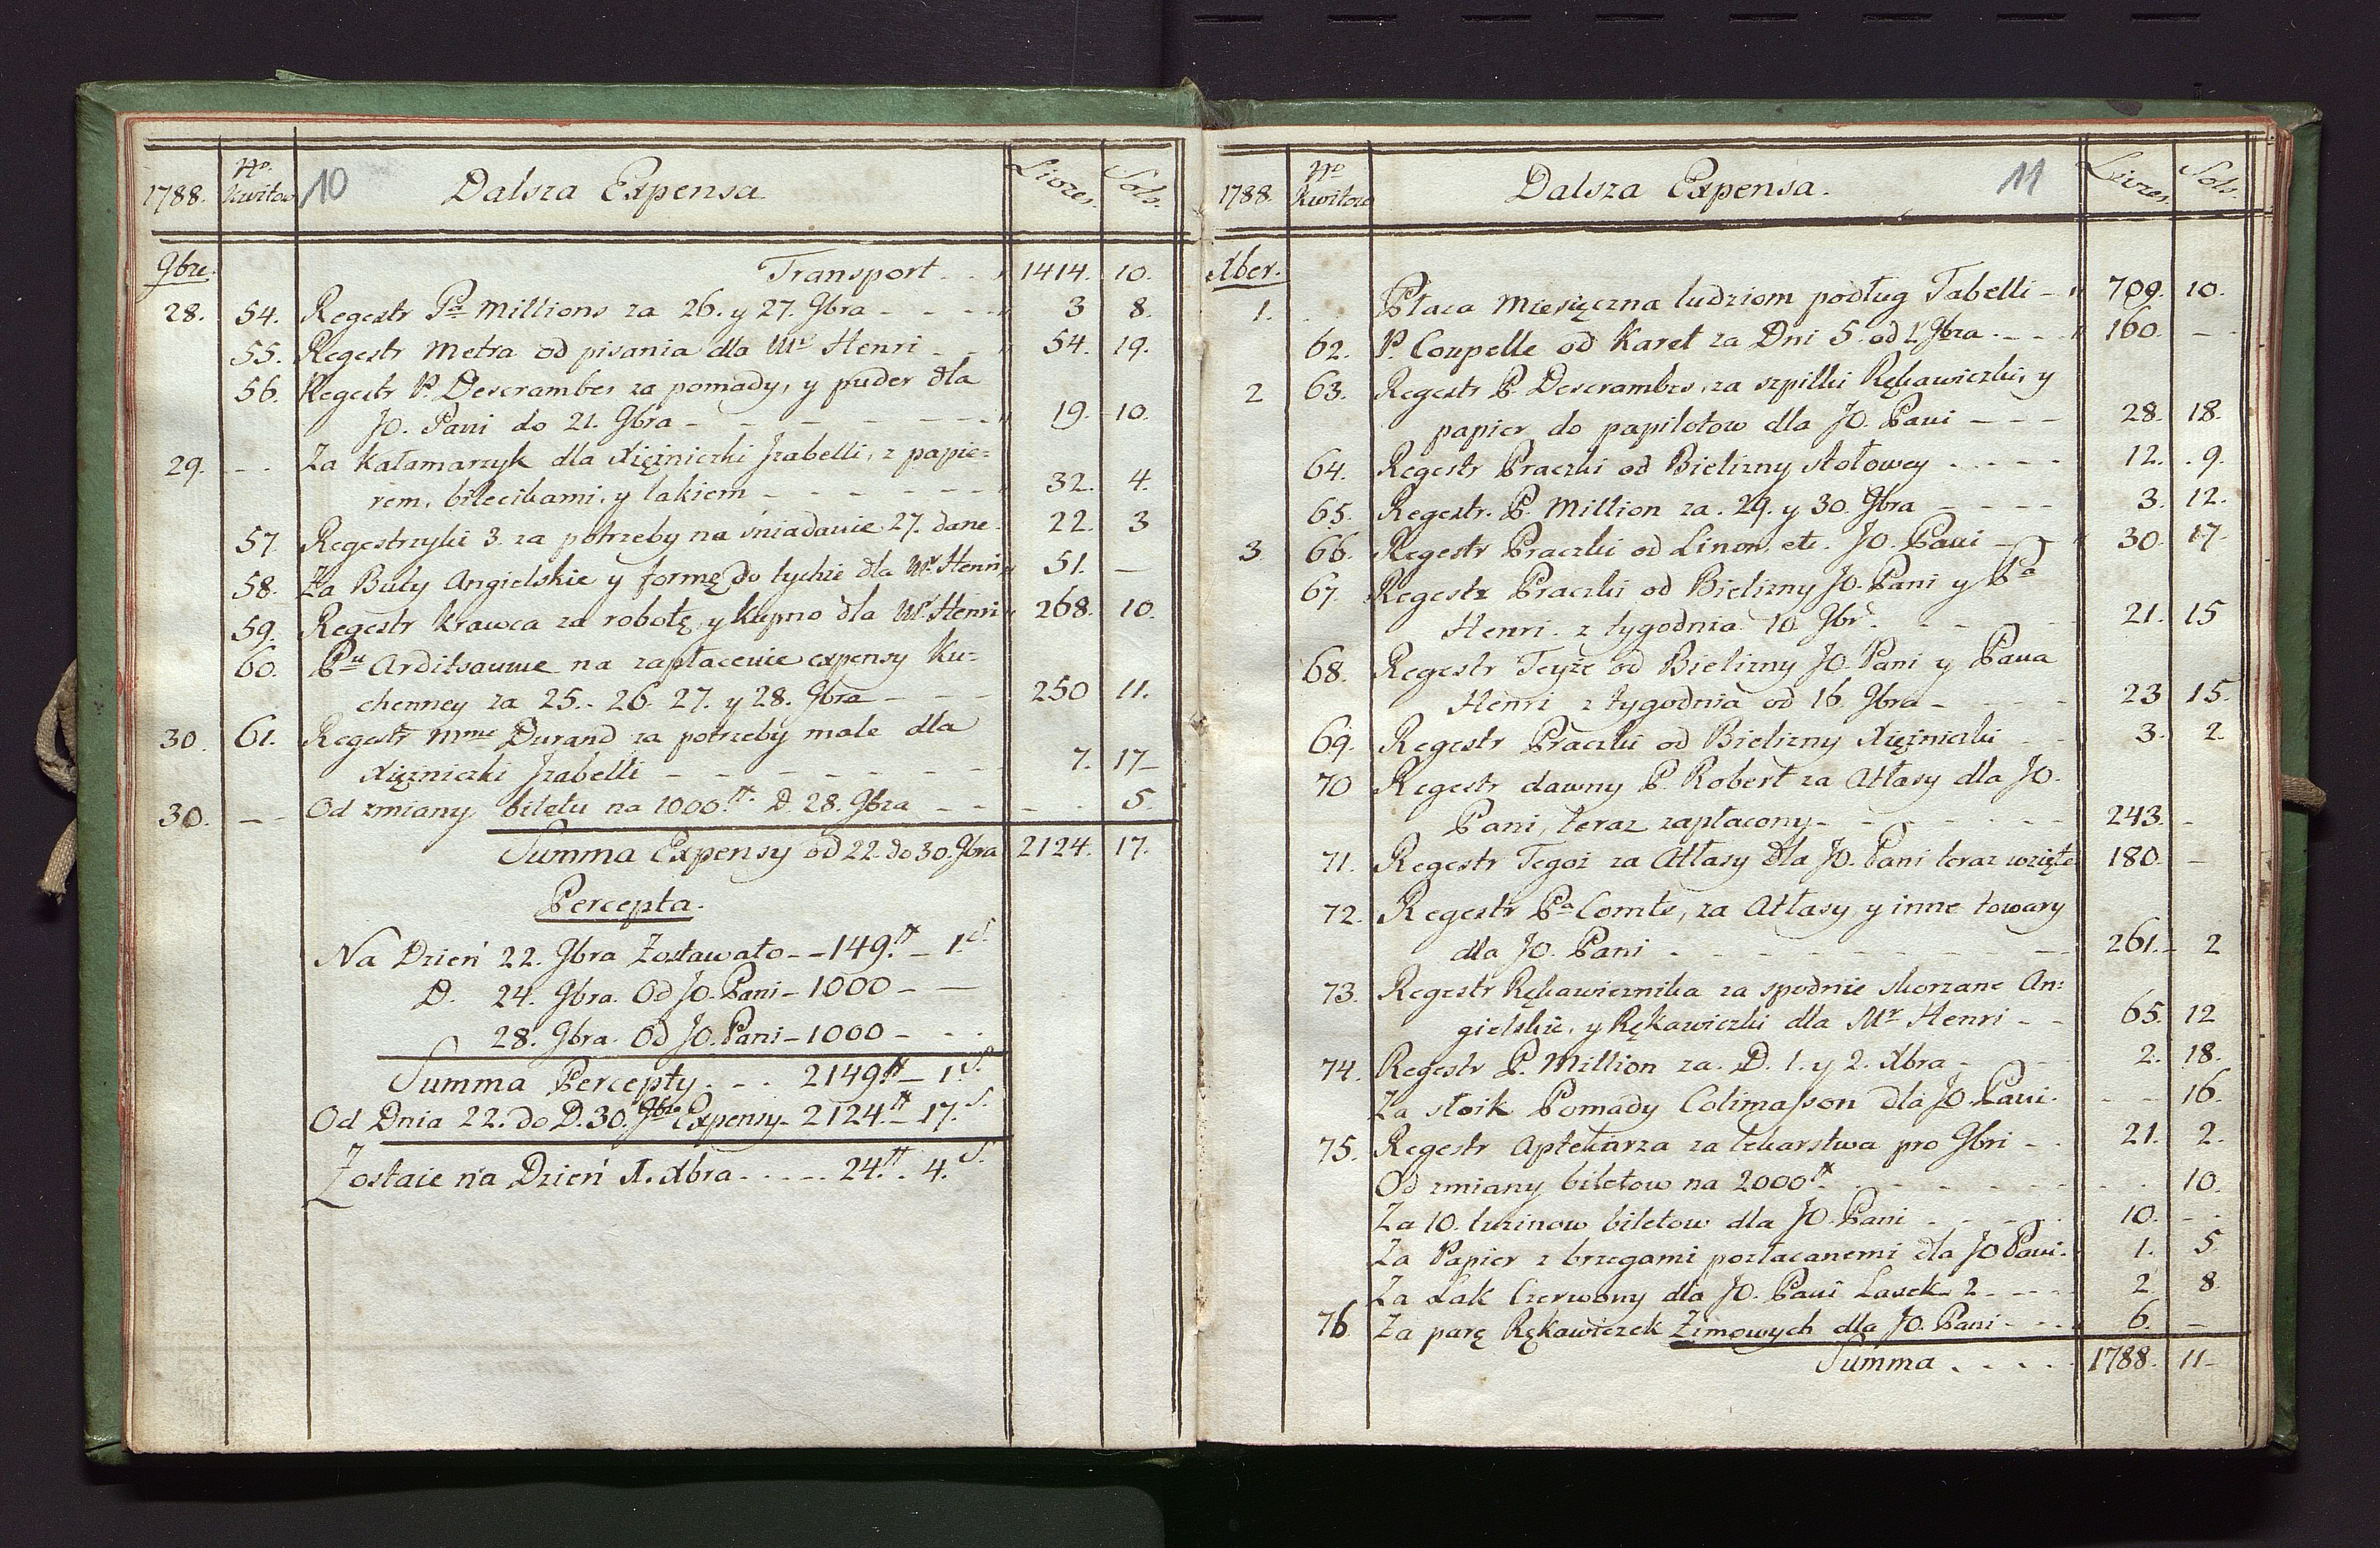 1788. No. Kwitow 10 Dalsza Expensa. Livres. Sols.
9bre. Transport 1414. 10.
28. 54. Regestr Pa Millions za 26. y 27. 9bra 3 8.
55. Regestr Metra od pisania dla Mr Henri 54. 19.
56. Regestr P. Descrambes za pomady, y puder dla
JO. Pani do 21. 9bra 19. 10.
29. Za Kałamarzyk dla Xiężniczki Jzabelli, z papie=
rem, bilecikami, y lakiem 32. 4.
57. Regestrzyki 3. za potrzeby na śniadanie 27. dane 22. 3
58. Za Buty Angielskie y formę do tychże dla Mr. Henri 51. —
59. Regestr Krawca za robotę y kupno dla Mr. Henri 268. 10.
60. Pu Arditsaume na zapłacenie expensy Ku=
chenney za 25. 26. 27. y 28. 9bra 250 11.
30. 61. Regestr Mme Durand za potrzeby małe dla
Xiężniczki Jzabelli 7. 17
30. — Od zmiany biletu na 1000.tt D. 28. 9bra 5.
Summa Expensy od 22. do 30. 9bra 2124. 17.
Percepta.
Na Dzień 22. 9bra Zostawało 149.tt 1.S.
D. 24. 9bra. Od JO. Pani 1000 —
28. 9bra. Od JO. Pani 1000
Summa Percepty 2149.tt 1.S.
Od Dnia 22. do D. 30. 9bra Expensy 2124.tt 17.S.
Zostaie na Dzień 1. Xbra 24.tt 4.S.
1788. No Kwitow Dalsza Expensa. 11 Livres. Sols.
Xber.
1. Płaca Miesięczna ludziom podług Tabelli 709. 10.
62. P. Coupelle od Karet za Dni 5. od 1. 9bra 160. —
2 63. Regestr P. Descrambes, za szpilki Rękawiczki, y
papier do papilotow dla JO. Pani 28. 18.
64. Regestr Praczki od Bielizny stołowey 12. 9.
65. Regestr. P. Million za. 29. y 30. 9bra 3. 12.
3 66. Regestr Praczki od Linon, etc. JO. Pani 30. 17.
67. Regestr Praczki od Bielizny JO. Pani y Pa
Henri. z tygodnia 10. 9br. 21. 15
68. Regestr Teyże od Bielizny JO. Pani y Pana
Henri z tygodnia od 16. 9bra 23 15.
69. Regestr Praczki od Bielizny Xiężniczki 3. 2
70 Regestr dawny P. Robert za Atłasy dla JO.
Pani, teraz zapłacony 243. -
71. Regestr Tegoż za Atłasy dla JO. Pani teraz wzięte 180. —
72. Regestr Pa Comte, za Atłasy y inne towary
dla JO. Pani 261. 2
73. Regestr Rękawicznika za spodnie skorzane An=
gielskie, y Rękawiczki dla Mr Henri 65. 12
74. Regestr P. Million za. D. 1. y 2. Xbra 2. 18.
Za słoik Pomady Colimasson dla JO. Pani. 16.
75. Regestr Aptekarza za lekarstwa pro 9bri 21. 2.
Od zmiany biletow na 2000tt 10.
Za 10. tuzinow biletow dla JO. Pani 10. -
Za Papier z brzegami pozłacanemi dla JO Pani 1. 5
Za Lak Czerwony dla JO. Pani Lasek 2 2 8
76 Za parę Rękawiczek Zimowych dla JO. Pani 6. —
Summa 1788. 11